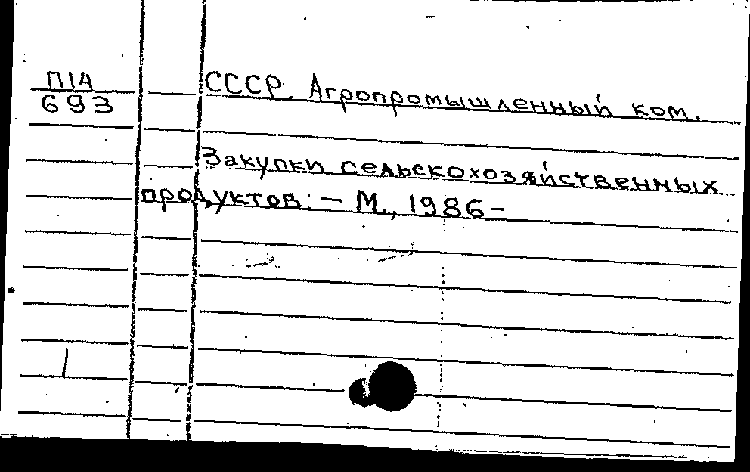 П1А
693
СССР. Агропромышленный ком.
Закупки сельскохозяйственных
продуктов: – М., 1986–